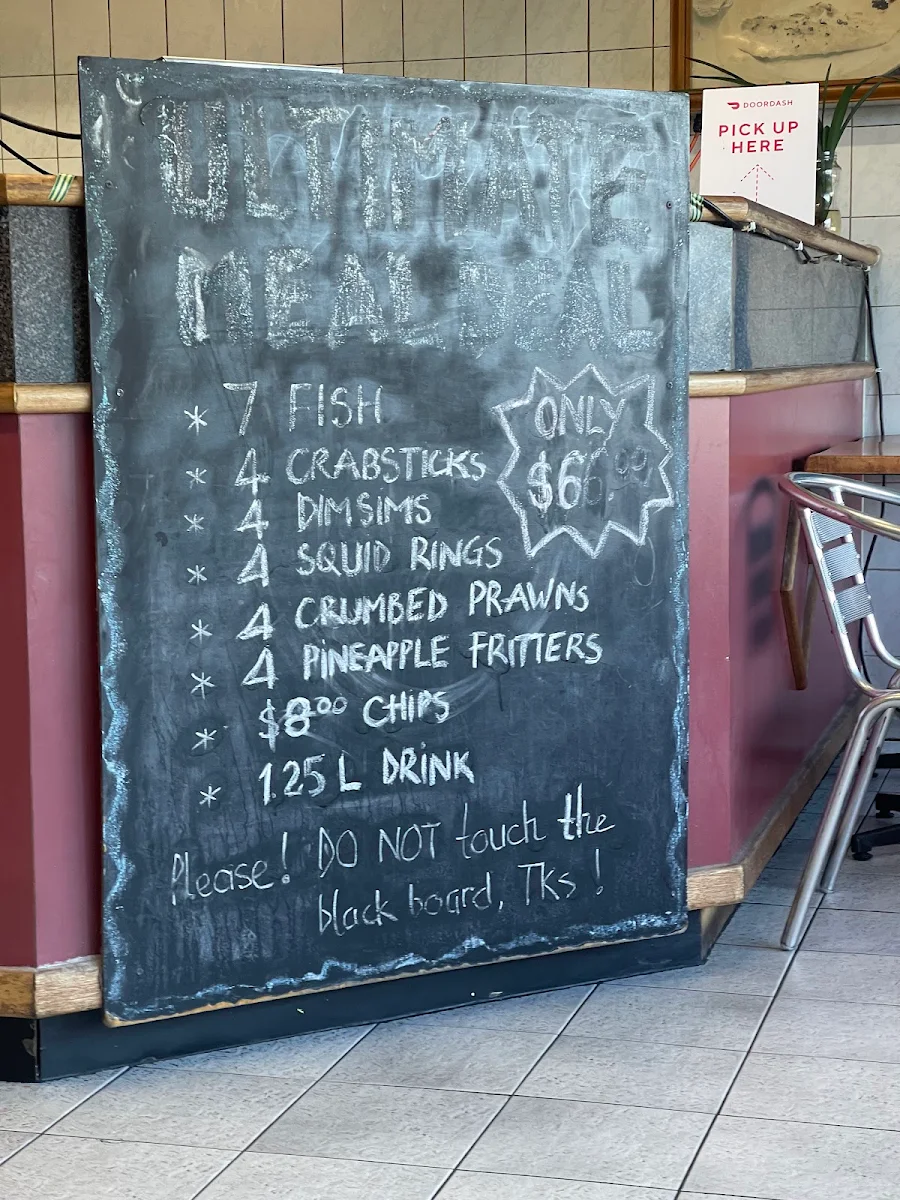 ULTIMATE
MEAL DEAL
* 7 FISH
* 4 CRABSTICKS
* 4 DIMSIMS
* 4 SQUID RINGS
* 4 CRUMBED PRAWNS
* 4 PINEAPPLE FRITTERS
* $8.00 CHIPS
* 1.25 L DRINK
ONLY
$66.00
Please! DO NOT touch the
black board, Tks!
DOORDASH
PICK UP
HERE